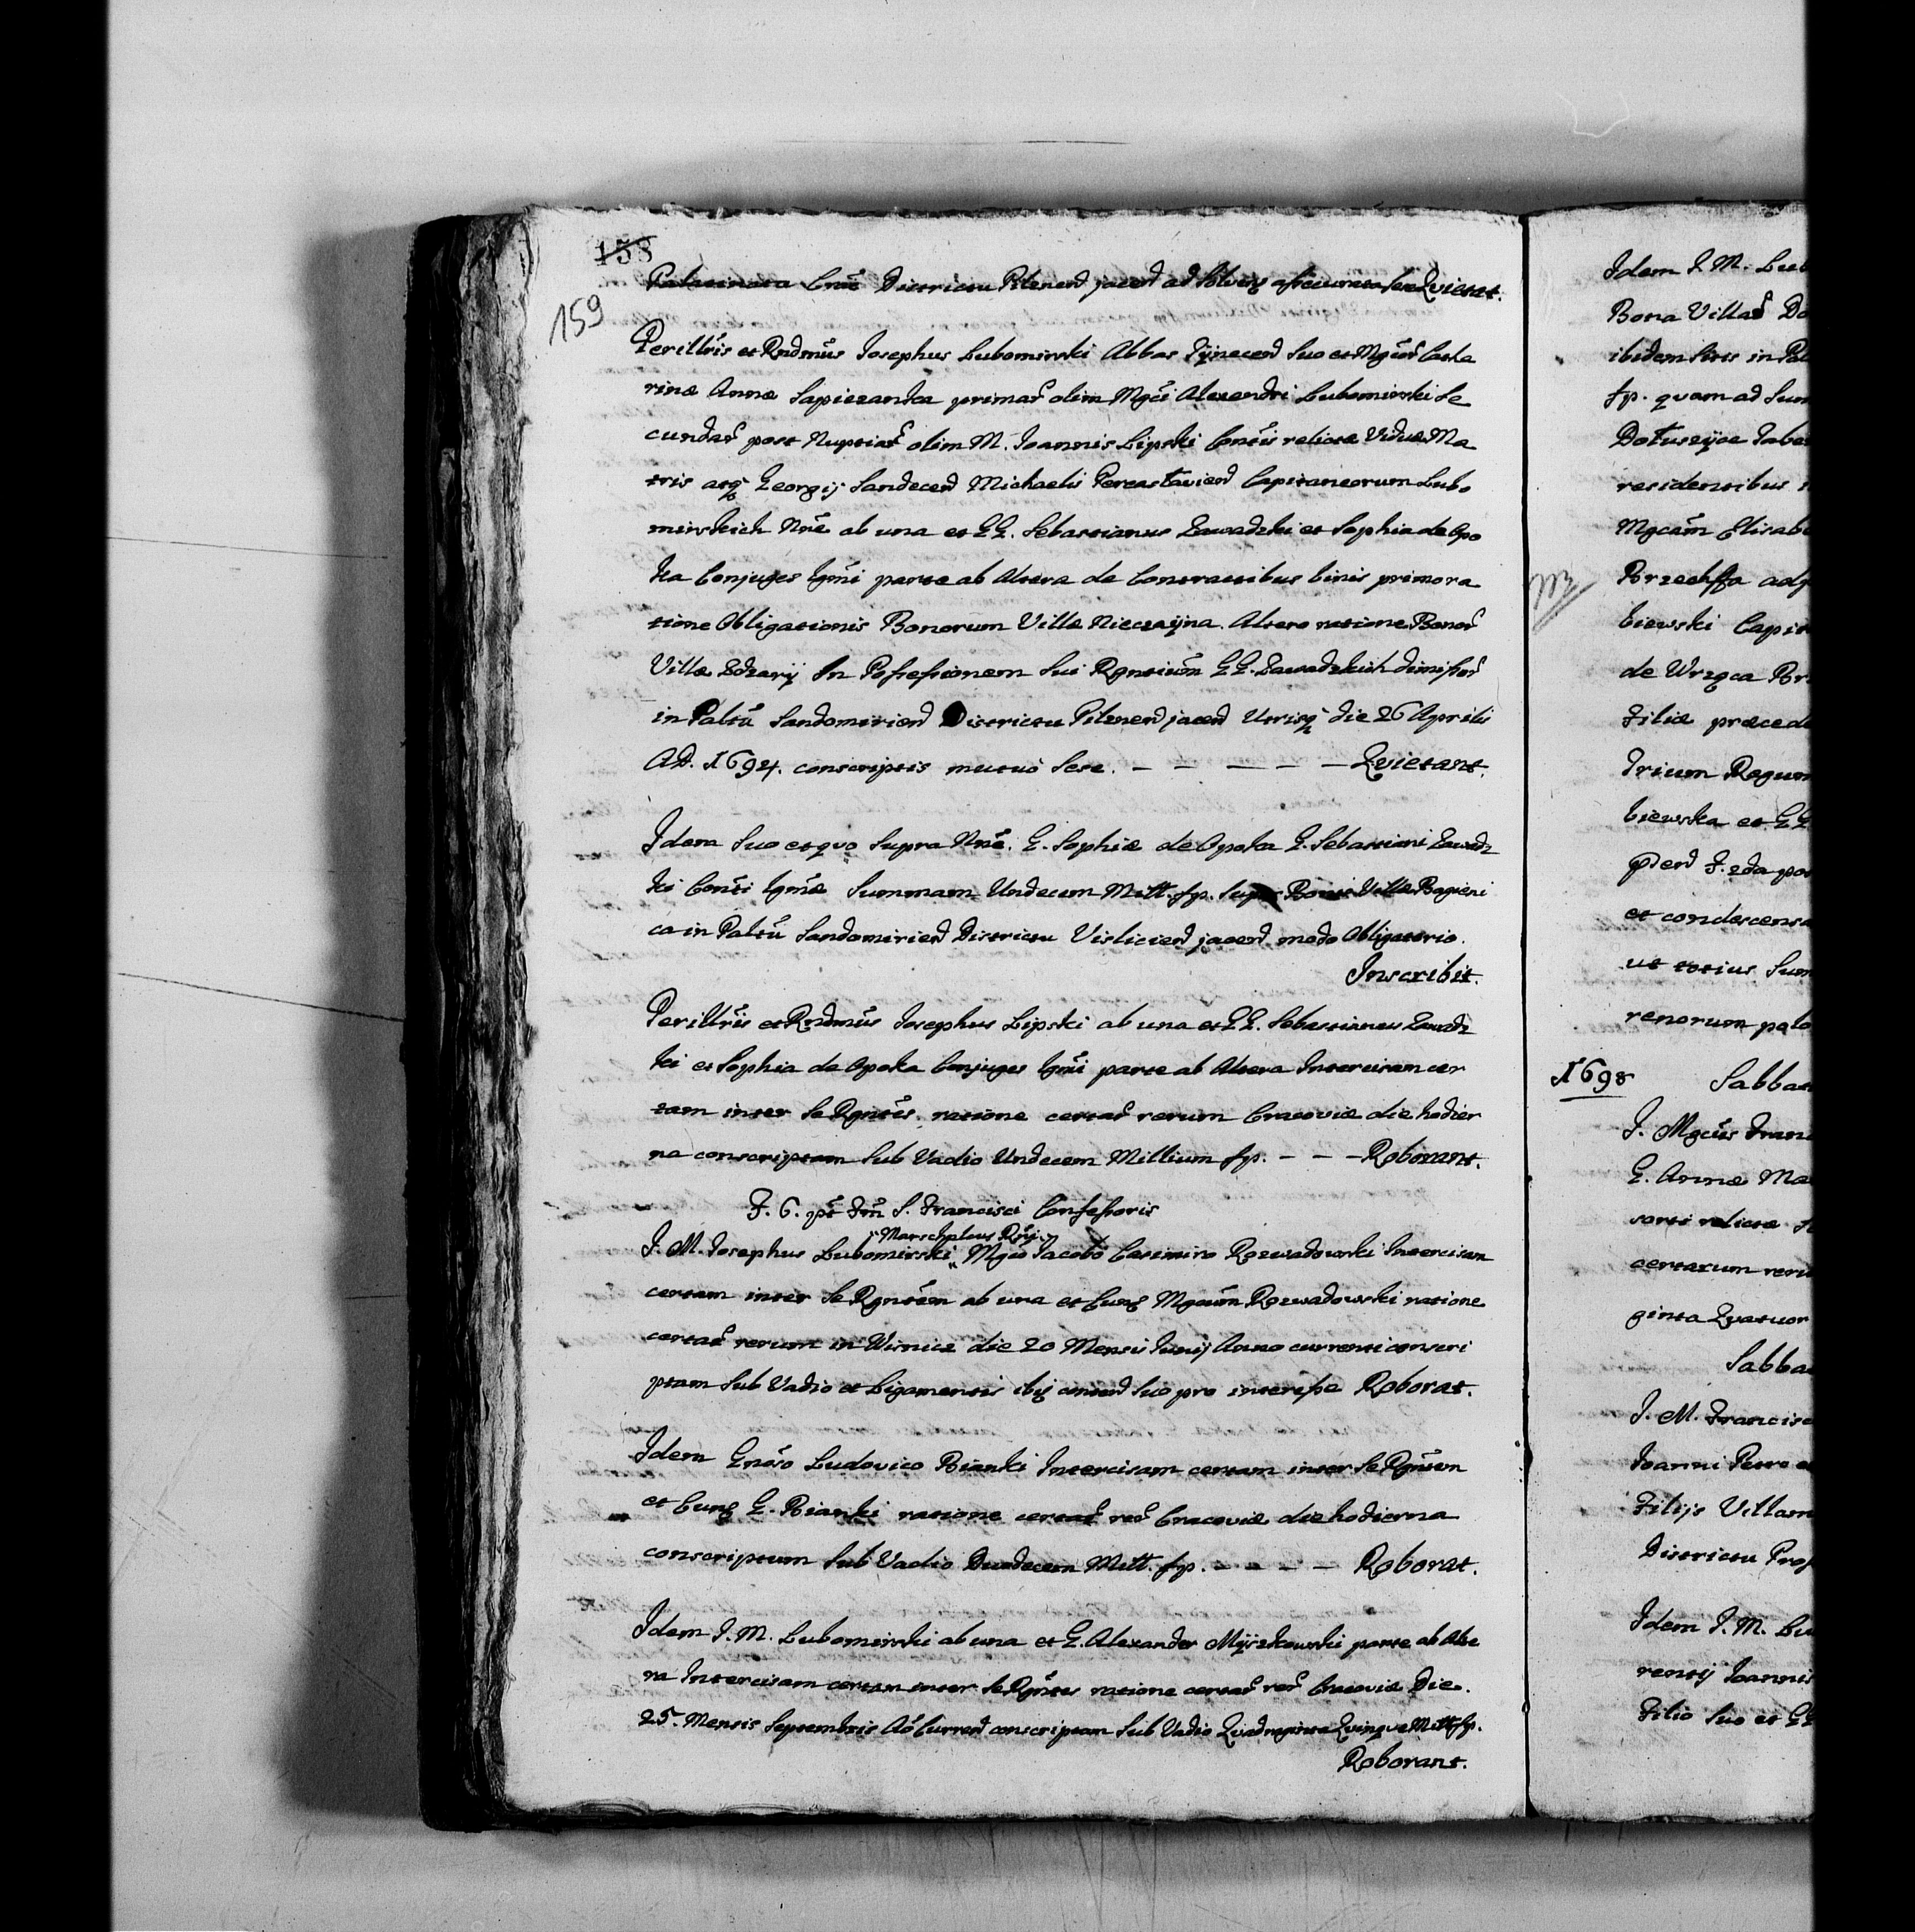 158
159
Palatinatu Crac̃ Districtu Pilznen̄ jacen̄ ad solven̄ assecurata Sese Qvietat.
Perillr̃is et Rndm̃us Josephus Lubomirski Abbas Tÿnecen̄ Suo et Mgcar̃ Catha
rinæ Annæ Sapiezanka primar̃ olim Mgc̃i Alexandri Lubomirski Se
cundar̃ post Nuptiar̃ olim M. Joannis Lipski Conti̇s relictæ Viduæ Ma
tris atq̃ Georgij Sandecen̄ Michaelis Pereaslavien̄ Capitaneorum Lubo
mirskich Nr̃e ab una et GG. Sebastianus Zawadzki et Sophia de Opo
ka Conjuges Lgm̃i parte ab Altera de Contractibus binis primo ra
tione Obligationis Bonorum Villæ Nieczajna. Altero ratione Bonor̃
Villæ Zdżarÿ In Possessionem Sui Rgntium̃ GG. Zawadzkich dimissor̃
in Paltũ Sandomirien̄ Districtu Pilznen̄ jacen̄ Utrisq̃ die 26 Aprilis
AD. 1694. conscriptis mutuo Sese. - - - - - Qvietant.
Idem Suo et qvo Supra Nñe. G. Sophiæ de Opoka G. Sebastiani Zawadz
ki Conti Lgm̃æ Summam Undecem Mill. fp. Super Bonis Villæ Bogieni
ca in Paltũ Sandomirien̄ Districtu Vislicien̄ jacen̄ modo Obligatorio.
Inscribit.
Perillr̃is et Rndm̃us Josephus Lipski ab una et GG. Sebastianus Zawadz
ki et Sophia de Opoka Conjuges Lgm̃i parte ab Altera Intercisam cer
tam inter Se Rgntes̃ ratione certar̃ rerum Cracoviæ die hodier
na conscriptam Sub Vadio Undecem Millium fp. - - - Roborant.
F. 6. pt̃ Fm̃ S. Francisci Confessoris
Marschalcus Rñi
J. M. Josephus Lubomirski Mgco Jacobo Casimiro Rozwadowski Intercisam
certam inter Se Rgntem̃ ab una et Eund̃ Mgcum̃ Rozwadowski ratione
certar̃ rerum in Wisnicz die 20 Mensis Junij Anno currenti conscri
ptam Sub Vadio et Ligamentis ibid̃ conten̄ Suo pro interesse Roborat.
Idem Gnos̃o Ludovico Bianki Intercisam certam inter Se Rgntem̃
et Eund̃ G. Bianki ratione certar̃ rer̃ Cracoviæ die hodierna
conscriptam Sub Vadio Duodecem Mill. fp. - - - - Roborat.
Idem J. M. Lubomirski ab una et G. Alexander Mÿszkowski parte ab Alte
ra Intercisam certam inter Se Rgntes̃ ratione certar̃ rer̃ Cracoviæ Die.
25. Mensis Septembris Aõ Curren̄ conscriptam Sub Vadio Qvadraginta Qvinqve Mill. fp.
Roborant.
Idem J. M. Lub
Bona Villar̃ Do
ibidem Sitis in Pal
fp. qvam ad Sum
residentibus
Mgcam̃ Elisabe
Brzechffa
biewski Capit
de Wrząca Br
Filiæ præcede
Trium Regum
biewska et GG
et condescensa
ut totius Sum
renorum polo
1698
Sabba
J. Mgcus̃ Franc
G. Annæ Ma
sorti relictæ
certarum reru
ginta Qvatuor
Sabba
J. M. Francisc
Joanni Petro
Filijs Villam
Districtu
Idem J. M. Lu
rentij Joannis
Filio Suo et GG